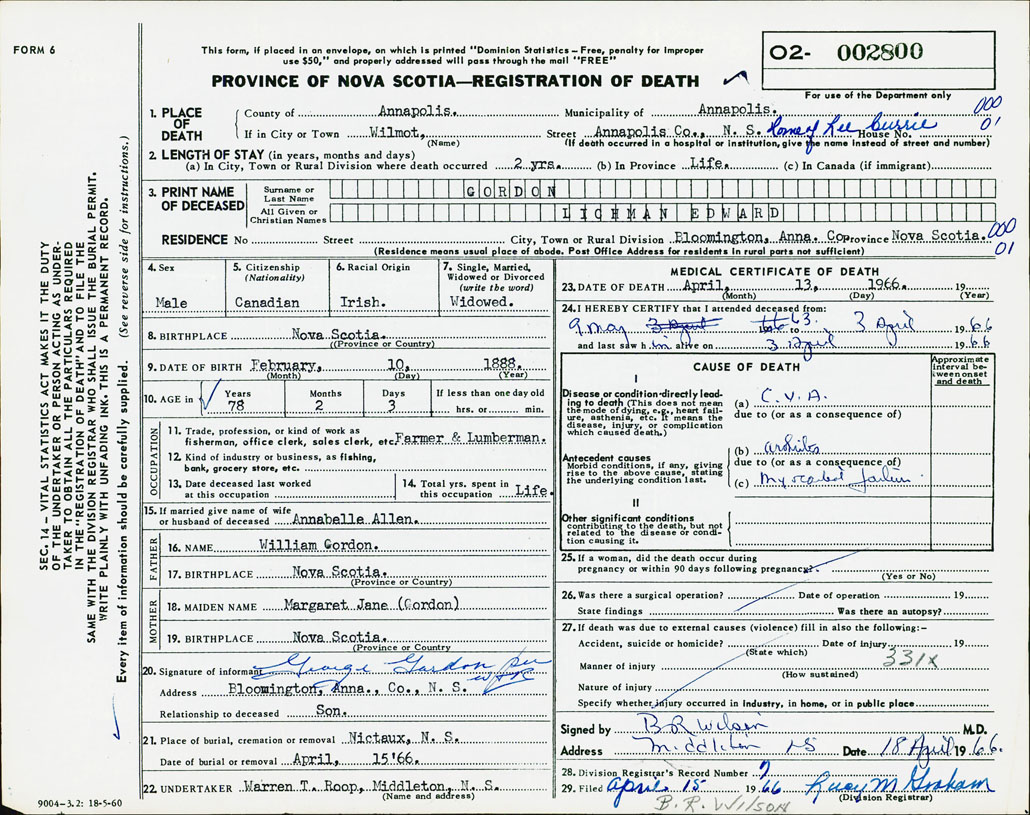 FORM 6
This form, if placed in an envelope, on which is printed "Dominion Statistics – Free, penalty for improper
use $50," and properly addressed will pass through the mail "FREE"
PROVINCE OF NOVA SCOTIA—REGISTRATION OF DEATH
O2- 002800
For use of the Department only
SEC. 14 – VITAL STATISTICS ACT MAKES IT THE DUTY
OF THE UNDERTAKER OR PERSON ACTING AS UNDER-
TAKER TO OBTAIN ALL THE PARTICULARS REQUIRED
IN THE "REGISTRATION OF DEATH" AND TO FILE THE
SAME WITH THE DIVISION REGISTRAR WHO SHALL ISSUE THE BURIAL PERMIT.
WRITE PLAINLY WITH UNFADING INK. THIS IS A PERMANENT RECORD.
Every item of information should be carefully supplied. (See reverse side for instructions.)
1. PLACE OF DEATH County of Annapolis. Municipality of Annapolis. 000
If in City or Town Wilmot, Street Annapolis Co., N. S. Home of Lee Currie House No. 01
(Name) (If death occurred in a hospital or institution, give the name instead of street and number)
2. LENGTH OF STAY (in years, months and days)
(a) In City, Town or Rural Division where death occurred 2 yrs. (b) In Province Life. (c) In Canada (if immigrant)
3. PRINT NAME OF DECEASED
Surname or Last Name GORDON
All Given or Christian Names LICHMAN EDWARD
RESIDENCE No Street City, Town or Rural Division Bloomington, Anna. Co Province Nova Scotia. 000
(Residence means usual place of abode. Post Office Address for residents in rural parts not sufficient) 01
4. Sex Male
5. Citizenship (Nationality) Canadian
6. Racial Origin Irish.
7. Single, Married, Widowed or Divorced (write the word) Widowed.
8. BIRTHPLACE Nova Scotia.
(Province or Country)
9. DATE OF BIRTH February, 10, 1888.
(Month) (Day) (Year)
10. AGE in Years Months Days If less than one day old
78 2 3 hrs. or min.
OCCUPATION
11. Trade, profession, or kind of work as
fisherman, office clerk, sales clerk, etc. Farmer & Lumberman.
12. Kind of industry or business, as fishing,
bank, grocery store, etc.
13. Date deceased last worked at this occupation
14. Total yrs. spent in this occupation Life.
15. If married give name of wife
or husband of deceased Annabelle Allen.
FATHER
16. NAME William Gordon.
17. BIRTHPLACE Nova Scotia.
(Province or Country)
MOTHER
18. MAIDEN NAME Margaret Jane (Gordon)
19. BIRTHPLACE Nova Scotia.
(Province or Country)
20. Signature of informant George Gordon per
Address Bloomington, Anna., Co., N. S.
Relationship to deceased Son.
21. Place of burial, cremation or removal Nictaux, N. S.
Date of burial or removal April, 15'66.
22. UNDERTAKER Warren T. Roop, Middleton, N. S.
(Name and address)
9004–3.2: 18-5-60
MEDICAL CERTIFICATE OF DEATH
23. DATE OF DEATH April, 13, 1966. 19
(Month) (Day) (Year)
24. I HEREBY CERTIFY that I attended deceased from:
9 May 3 April 63. to 3 April 1966
and last saw him alive on 3 April 1966
CAUSE OF DEATH
Approximate interval between onset and death
I
Disease or condition directly leading to death (This does not mean the mode of dying, e.g., heart failure, asthenia, etc. It means the disease, injury, or complication which caused death.)
(a) C.V.A.
due to (or as a consequence of)
Antecedent causes
Morbid conditions, if any, giving rise to the above cause, stating the underlying condition last.
(b)
due to (or as a consequence of)
(c) Myocardial failure
II
Other significant conditions
contributing to the death, but not related to the disease or condition causing it.
25. If a woman, did the death occur during
pregnancy or within 90 days following pregnancy?
(Yes or No)
26. Was there a surgical operation? Date of operation 19
State findings Was there an autopsy?
27. If death was due to external causes (violence) fill in also the following:–
Accident, suicide or homicide? Date of injury 19
(State which) 331X
Manner of injury
(How sustained)
Nature of injury
Specify whether injury occurred in industry, in home, or in public place
Signed by B R Wilson M.D.
Address Middleton NS Date 18 April 1966.
28. Division Registrar's Record Number 7
29. Filed April 15 1966 Lucy M Graham
(Division Registrar)
B.R. WILSON